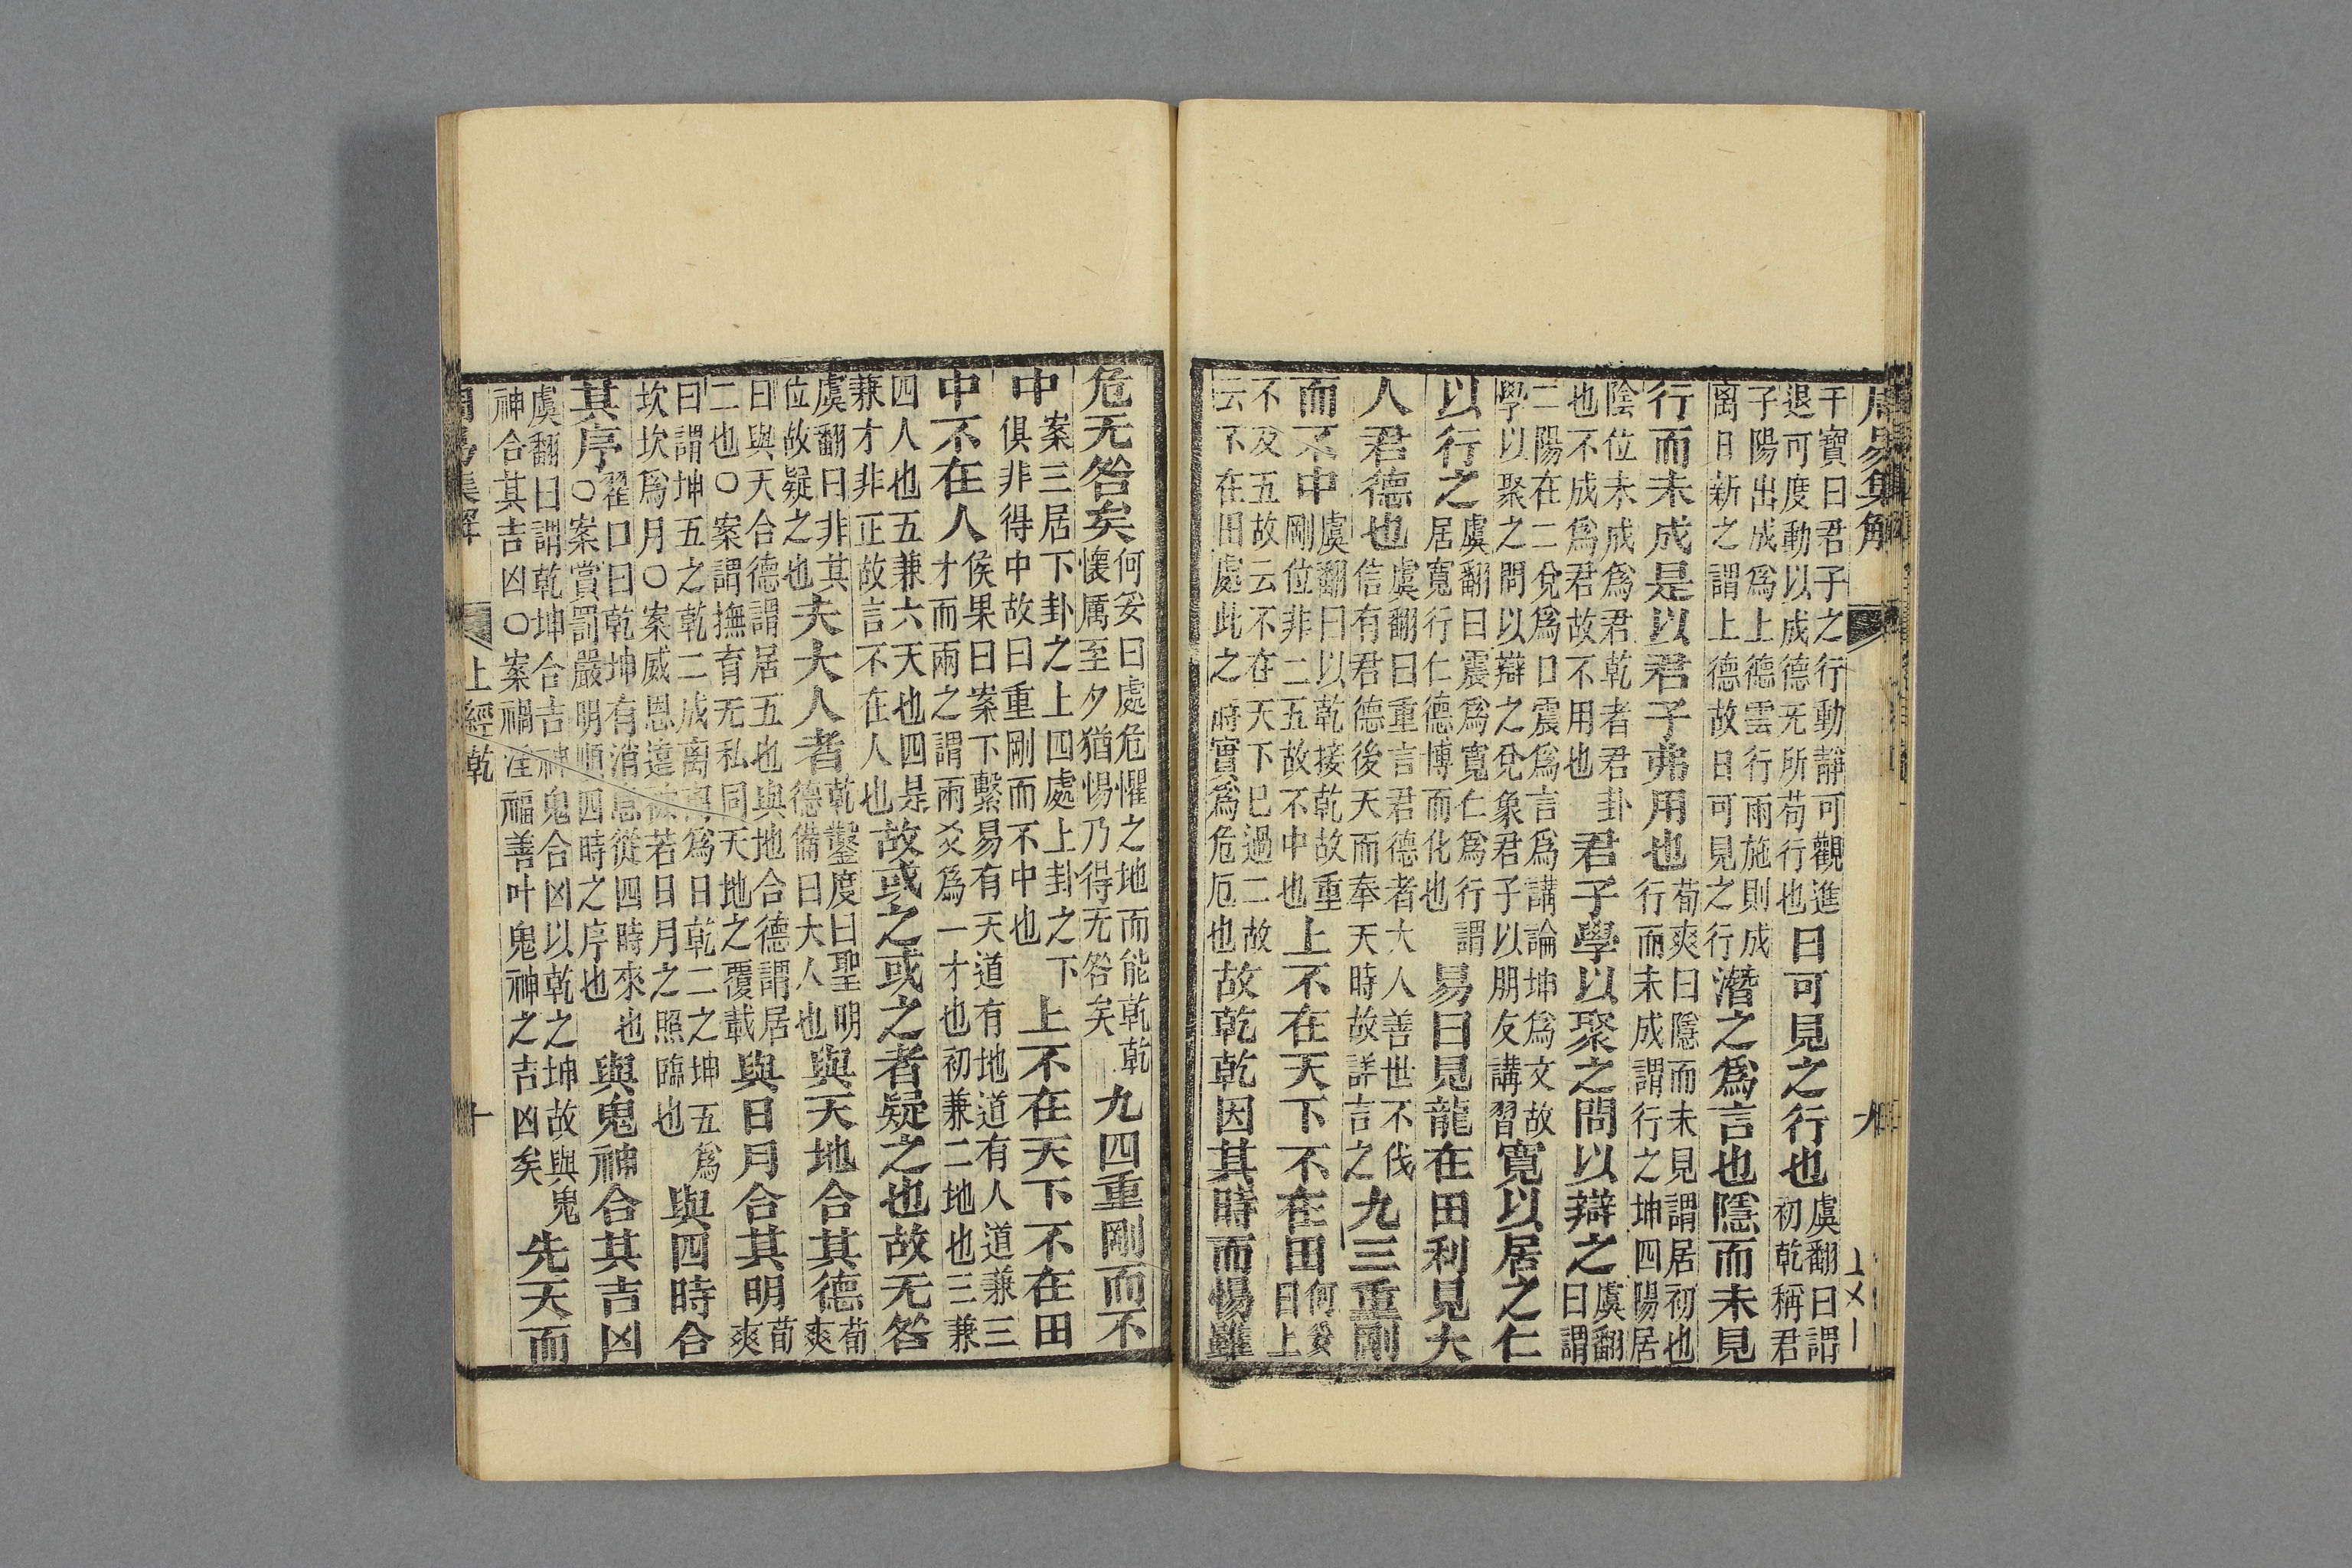 周易集解
九
干寶曰君子之行動靜可觀進
退可度動以成德无所苟行也
日可見之行也
虞翻曰謂
初乾稱君
子陽出成爲上德雲行雨施則成
离日新之謂上德故日可見之行
潛之爲言也隱而未見
行而未成是以君子弗用也
荀爽曰隱而未見謂居初也
行而未成謂行之坤四陽居
陰位未成爲君乾者君卦
也不成爲君故不用也
君子學以聚之問以辯之
虞翻
曰謂
二陽在二兌爲口震爲言爲講論坤爲文故
學以聚之問以辯之兌象君子以朋友講習
寬以居之仁
以行之
虞翻曰震爲寬仁爲行謂
居寬行仁德博而化也
易曰見龍在田利見大
人君德也
虞翻曰重言君德者大人善世不伐
信有君德後天而奉天時故詳言之
九三重剛
而不中
虞翻曰以乾接乾故重
剛位非二五故不中也
上不在天下不在田
何妥
曰上
不及五故云不在天下已過二故
云不在田處此之時實爲危厄也
故乾乾因其時而惕雖
危无咎矣
何妥曰處危懼之地而能乾乾
懷厲至夕猶惕乃得无咎矣
九四重剛而不
中
案三居下卦之上四處上卦之下
俱非得中故曰重剛而不中也
上不在天下不在田
中不在人
侯果曰案下繫易有天道有地道有人道兼三
才而兩之謂兩爻爲一才也初兼二地也三兼
四人也五兼六天也四是
兼才非正故言不在人也
故或之或之者疑之也故无咎
虞翻曰非其
位故疑之也
夫大人者
乾鑿度曰聖明
德備曰大人也
與天地合其德
荀
爽
曰與天合德謂居五也與地合德謂居
二也○案謂撫育无私同天地之覆載
與日月合其明
荀
爽
曰謂坤五之乾二成离离爲日乾二之坤五爲
坎坎爲月○案威恩遠被若日月之照臨也
與四時合
其序
翟口曰乾坤有消息從四時來也
○案賞罰嚴明順四時之序也
與鬼神合其吉凶
虞翻曰謂乾坤合吉神鬼合凶以乾之坤故與鬼
神合其吉凶○案禍淫福善叶鬼神之吉凶矣
先天而
周易集解
上經 乾
十